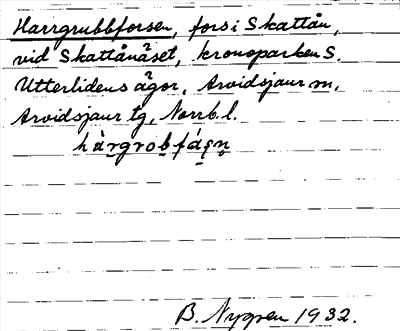 Harrgrubbforsen, fors i Skattån,
vid Skattånäset, kronoparken S.
Utterlidens ägor, Arvidsjaur sn,
Arvidsjaur tg, Norrb. l.
B. Nygren 1932.